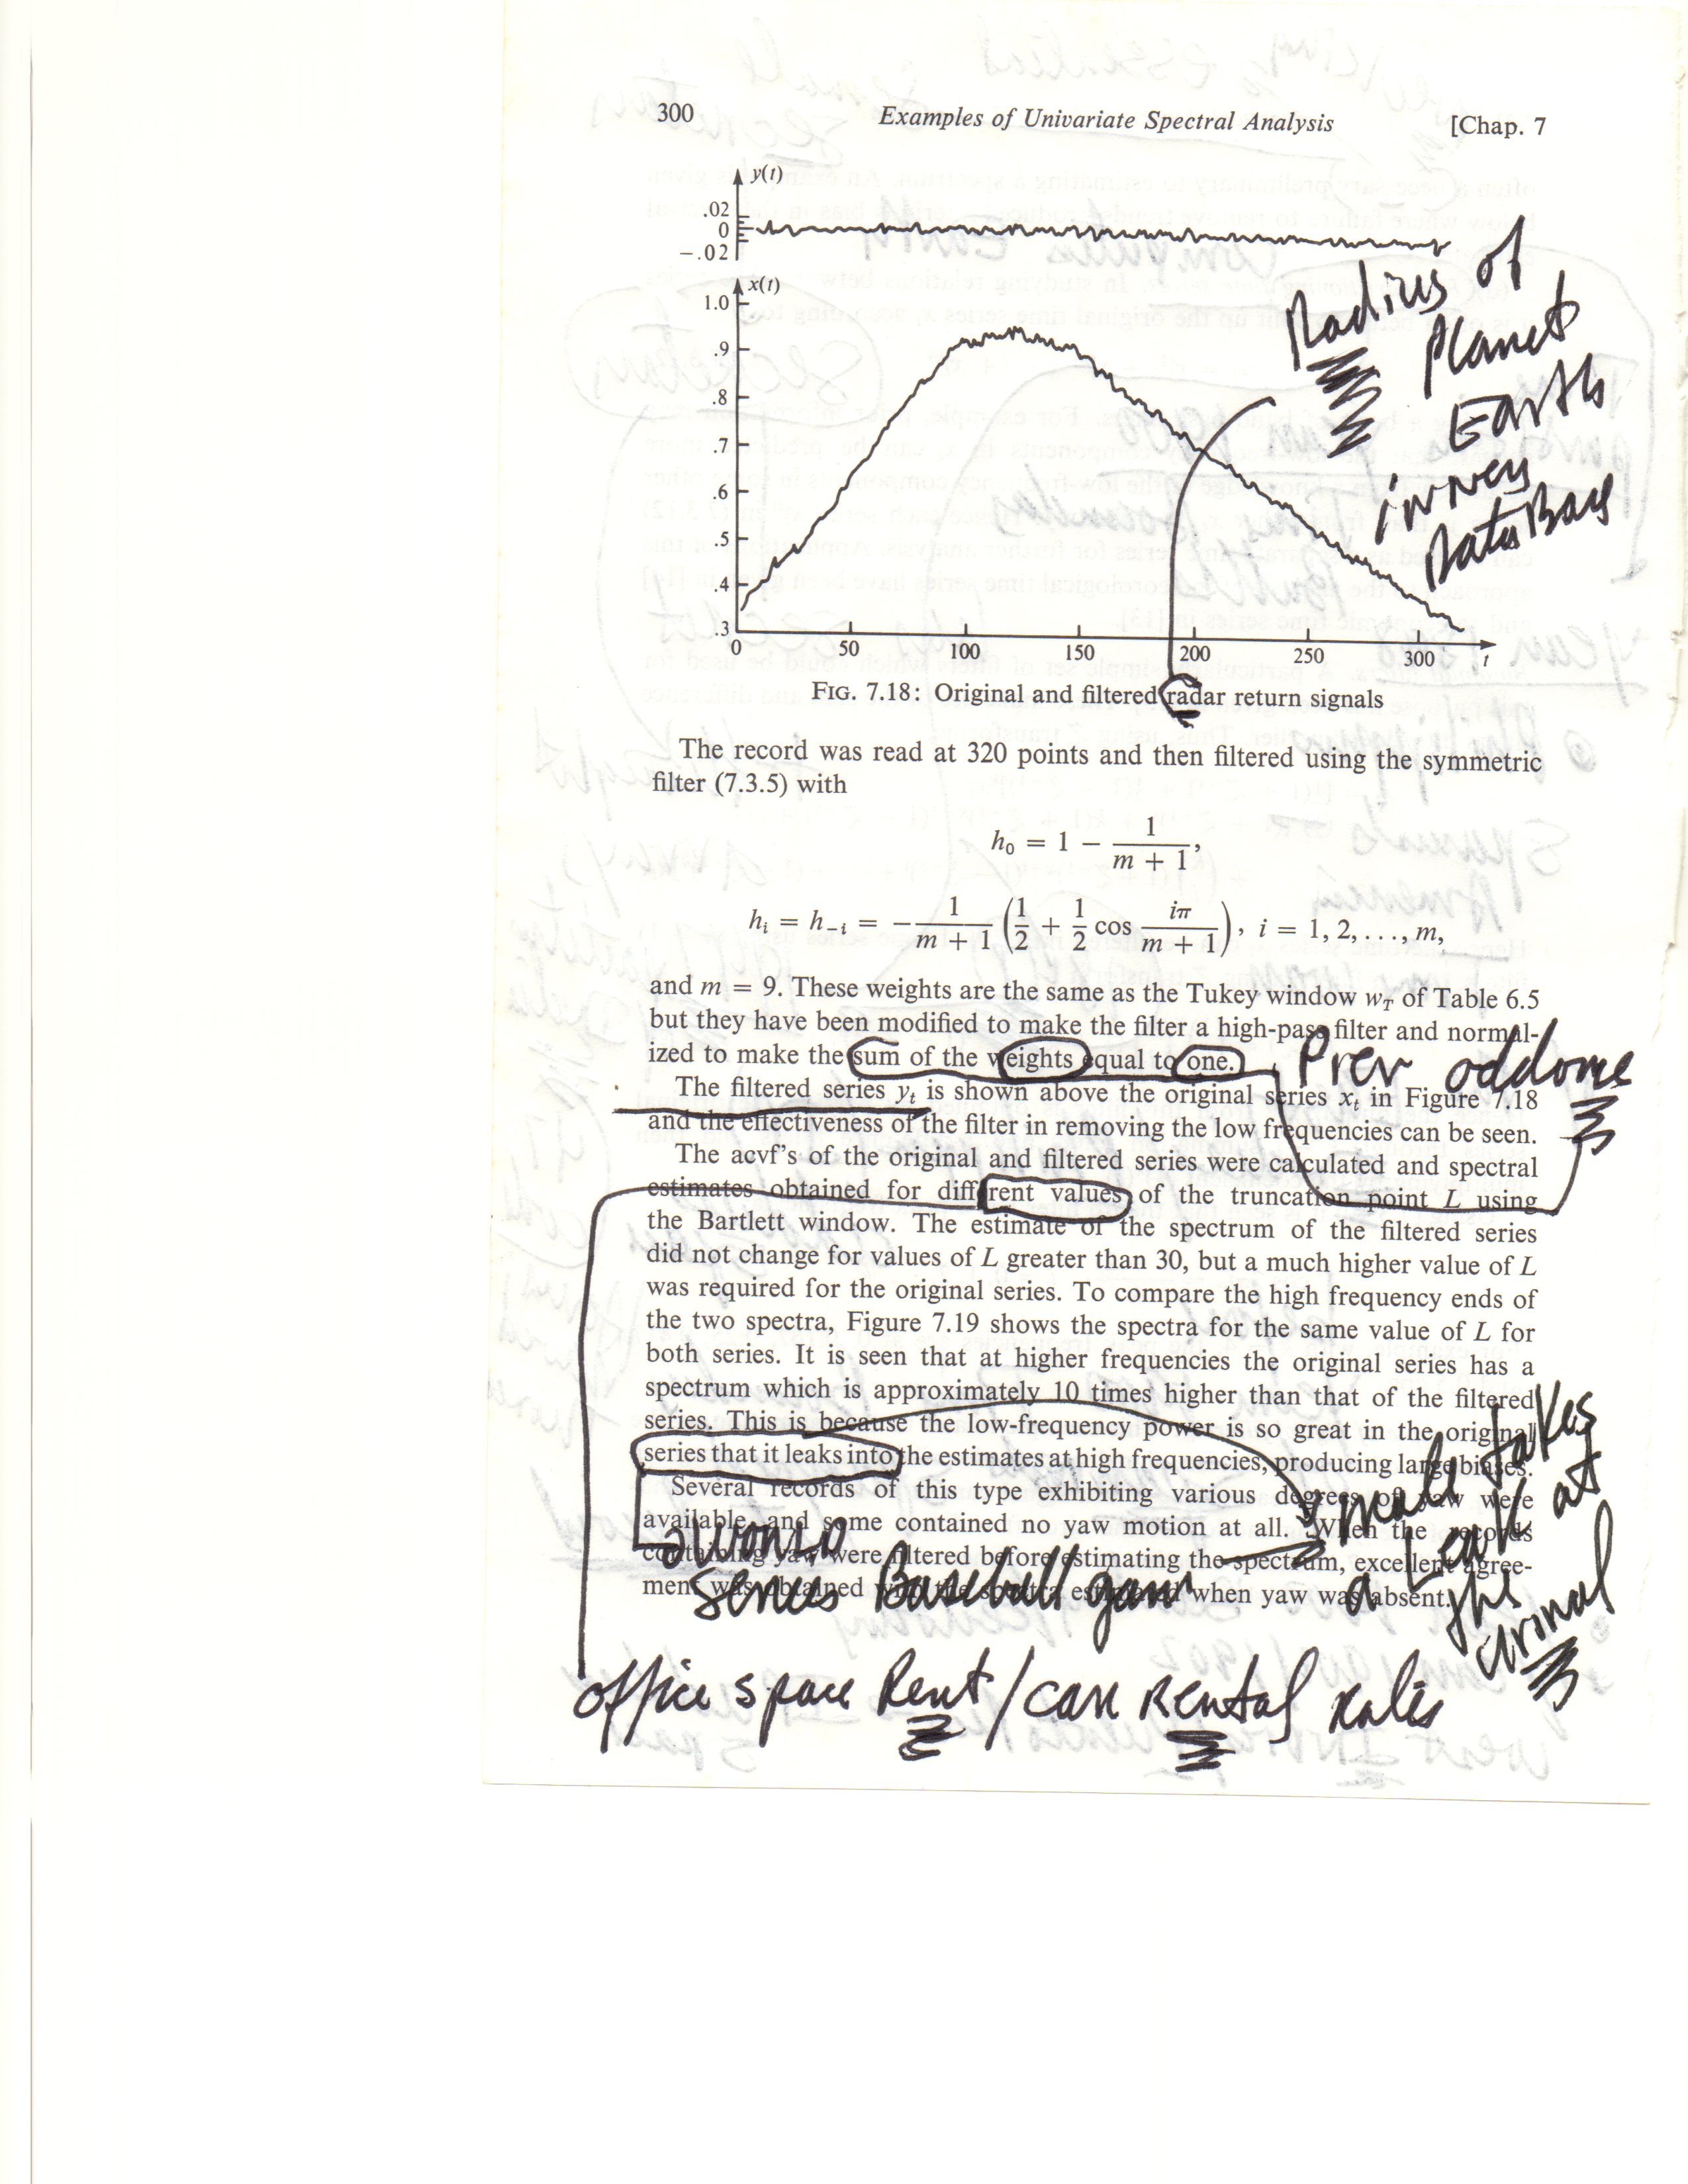 300 Examples of Univariate Spectral Analysis [Chap. 7
y(t)
.02
0
-.02
x(t)
1.0
.9
.8
.7
.6
.5
.4
.3
0 50 100 150 200 250 300 t
Radius of
planet
Earth
in
Data
FIG. 7.18: Original and filtered radar return signals
The record was read at 320 points and then filtered using the symmetric
filter (7.3.5) with
h₀ = 1 − 1/(m + 1),
hᵢ = h₋ᵢ = − 1/(m + 1) (1/2 + 1/2 cos iπ/(m + 1)), i = 1, 2, . . ., m,
and m = 9. These weights are the same as the Tukey window w_T of Table 6.5
but they have been modified to make the filter a high-pass filter and normal-
ized to make the sum of the weights equal to one.
Prev
The filtered series y_t is shown above the original series x_t in Figure 7.18
and the effectiveness of the filter in removing the low frequencies can be seen.
The acvf's of the original and filtered series were calculated and spectral
estimates obtained for different values of the truncation point L using
the Bartlett window. The estimate of the spectrum of the filtered series
did not change for values of L greater than 30, but a much higher value of L
was required for the original series. To compare the high frequency ends of
the two spectra, Figure 7.19 shows the spectra for the same value of L for
both series. It is seen that at higher frequencies the original series has a
spectrum which is approximately 10 times higher than that of the filtered
series. This is because the low-frequency power is so great in the original
series that it leaks into the estimates at high frequencies, producing large biases.
Several records of this type exhibiting various degrees of yaw were
available, and some contained no yaw motion at all. When the records
containing yaw were filtered before estimating the spectrum, excellent agree-
ment was obtained with the spectra estimated when yaw was absent.
takes
a Leak at
the
urinal
World
Series Baseball game
office space Rent / car Rental rates